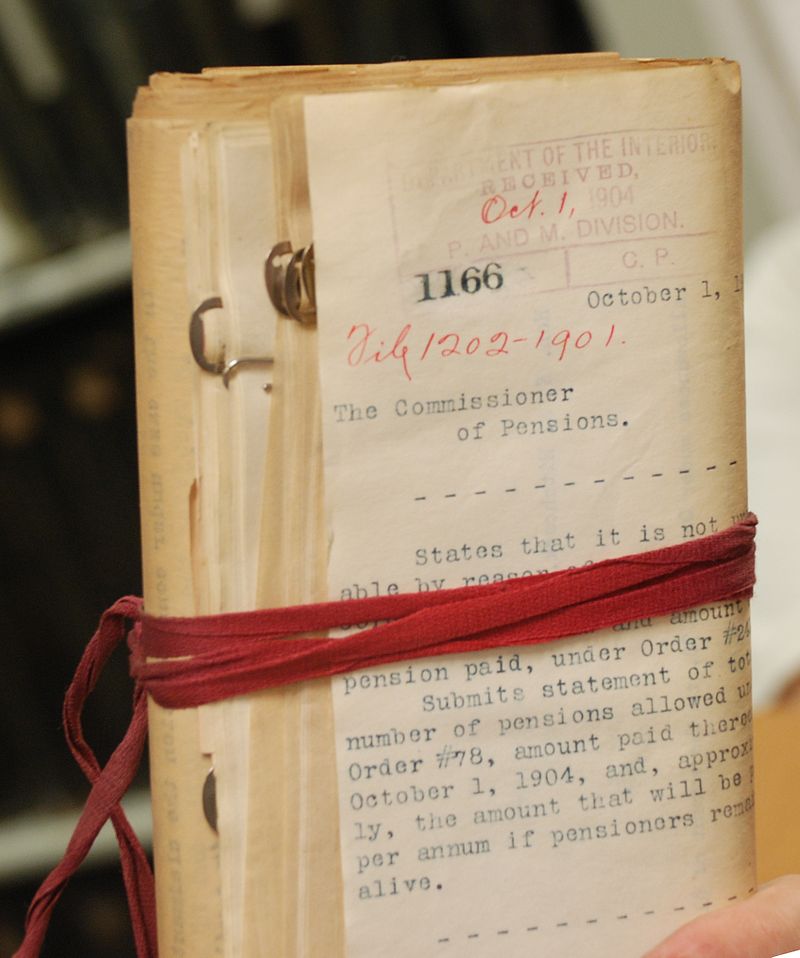 DEPARTMENT OF THE INTERIOR,
RECEIVED,
Oct. 1, 1904
P. AND M. DIVISION.
C. P.
1166
October 1, 1
File 1202-1901.
The Commissioner
of Pensions.
- - - - - - - - - - - -
States that it is not
able by reason of
and amount
pension paid, under Order #24
Submits statement of tot
number of pensions allowed un
Order #78, amount paid there
October 1, 1904, and, approxi
ly, the amount that will be p
per annum if pensioners remai
alive.
- - - - - - - - - - - -